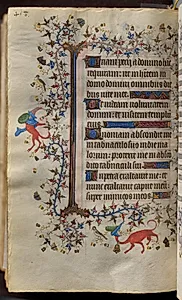 Unam petij a domino hanc
requiram: ut inhabitem in
domo domini omnibus die
bus vite mee
Ut videam voluntatem do
mini: et visitem templum
eius
Quoniam abscondit me
in tabernaculo suo in die ma
lorum: protexit me in abs
condito tabernaculi sui
In petra exaltavit me: et
nunc exaltavit caput meum
super inimicos meos